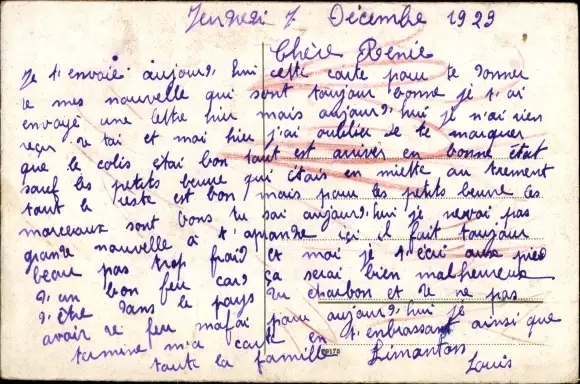 Vendredi 7 Décembre 1923
Chère Renie
Je t'envoie aujourd'hui cette carte pour te donner
de mes nouvelle qui sont toujour bonne je t'ai
envoyé une lettre hier mais aujourd'hui je n'ai rien
reçu de tai et mai hier j'ai oublier de te marquer
que le colis étai bon tout est arriver en bonne état
sauf les petits beurre qui étais en miette au trement
tout le reste est bon mais pour les petits beurre les
morceaux sont bons tu sai aujourd'hui je ne pas
grande nouvelle à t'aprandre içi il fait toujour
beau pas trop fraid et mai je t'écri aux pied
d'un bon feu car ça serai bien malheureux
d'être dans le pays du charbon et de ne pas
avoir de feu mafai pour aujourd'hui je
termine m'a carte en t'enbrassant ainsi que
toute la famille Limantour
Louis